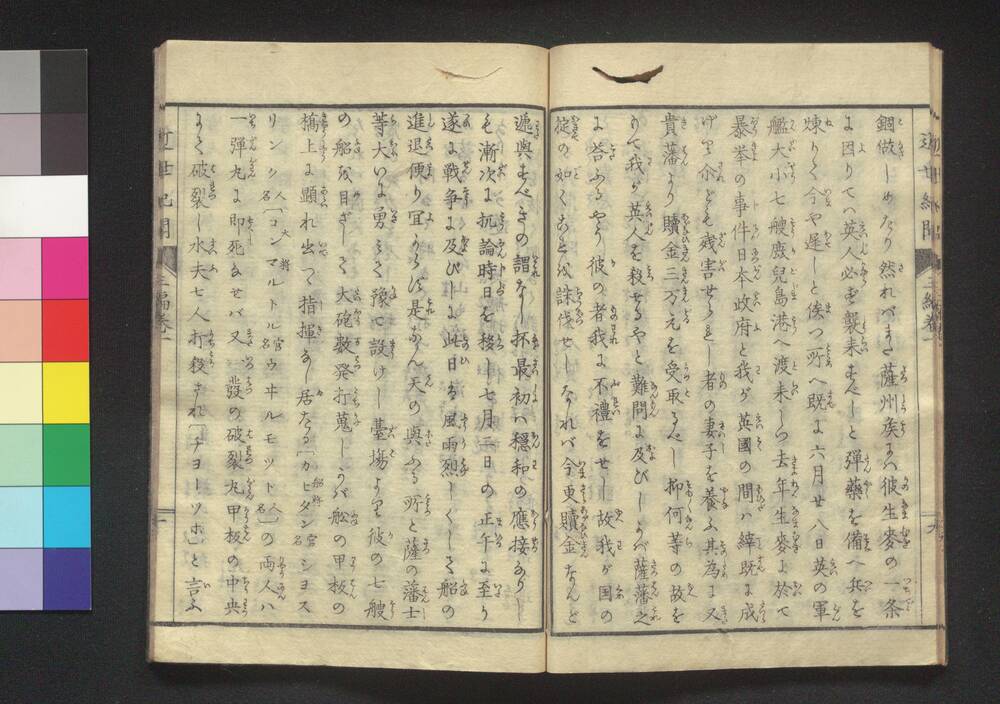 鎖做しめたり然れバまた薩州侯にハ彼生麥の一条
に因りてハ英人必ず襲来すべしと彈藥を備へ兵を
煉りく今や遅しと俟つ所へ既に六月廿八日英の軍
艦大小七艘鹿兒島港へ渡来しつ去年生麥に於て
暴挙の事件日本政府と我が英國の間ハ繹既に成
げり介ども残害せられし者の妻子を養ふ其為に又
貴藩より贖金三万元を受取るべし抑何等の故を
もて我が英人を殺せるやと難問に及びしかバ薩藩之
に答ふるやう彼の者我に不禮をせし故我が国の
掟の如くこれを誅伐せしなれバ今更贖金なんど
遞與すべきの謂なし抔最初ハ穏和の應接なりし
も漸次に抗論時日を接し七月二日の正午に至り
遂に戦争に及びしに此日ハ風雨烈しくして船の
進退便り宜からず是なん天の與ふる所と薩の藩士
等大いに勇ミて豫て設けし臺場より彼の七艘
の船を目ざして大砲数発打蒐しかバ舩の甲板の
橋上に顕れ出つ指揮なし居たる「カヒタン官名シヨス
リンク人名「コンマルトル大將官名ウヰルモツト人名」の両人ハ
一彈丸に即死なせバ又一發の破裂丸甲板の中央
にて破裂し水夫七人打殺され「チヨーソホ」と言ふ
近世紀聞
三編卷一
近世紀聞
三編卷一